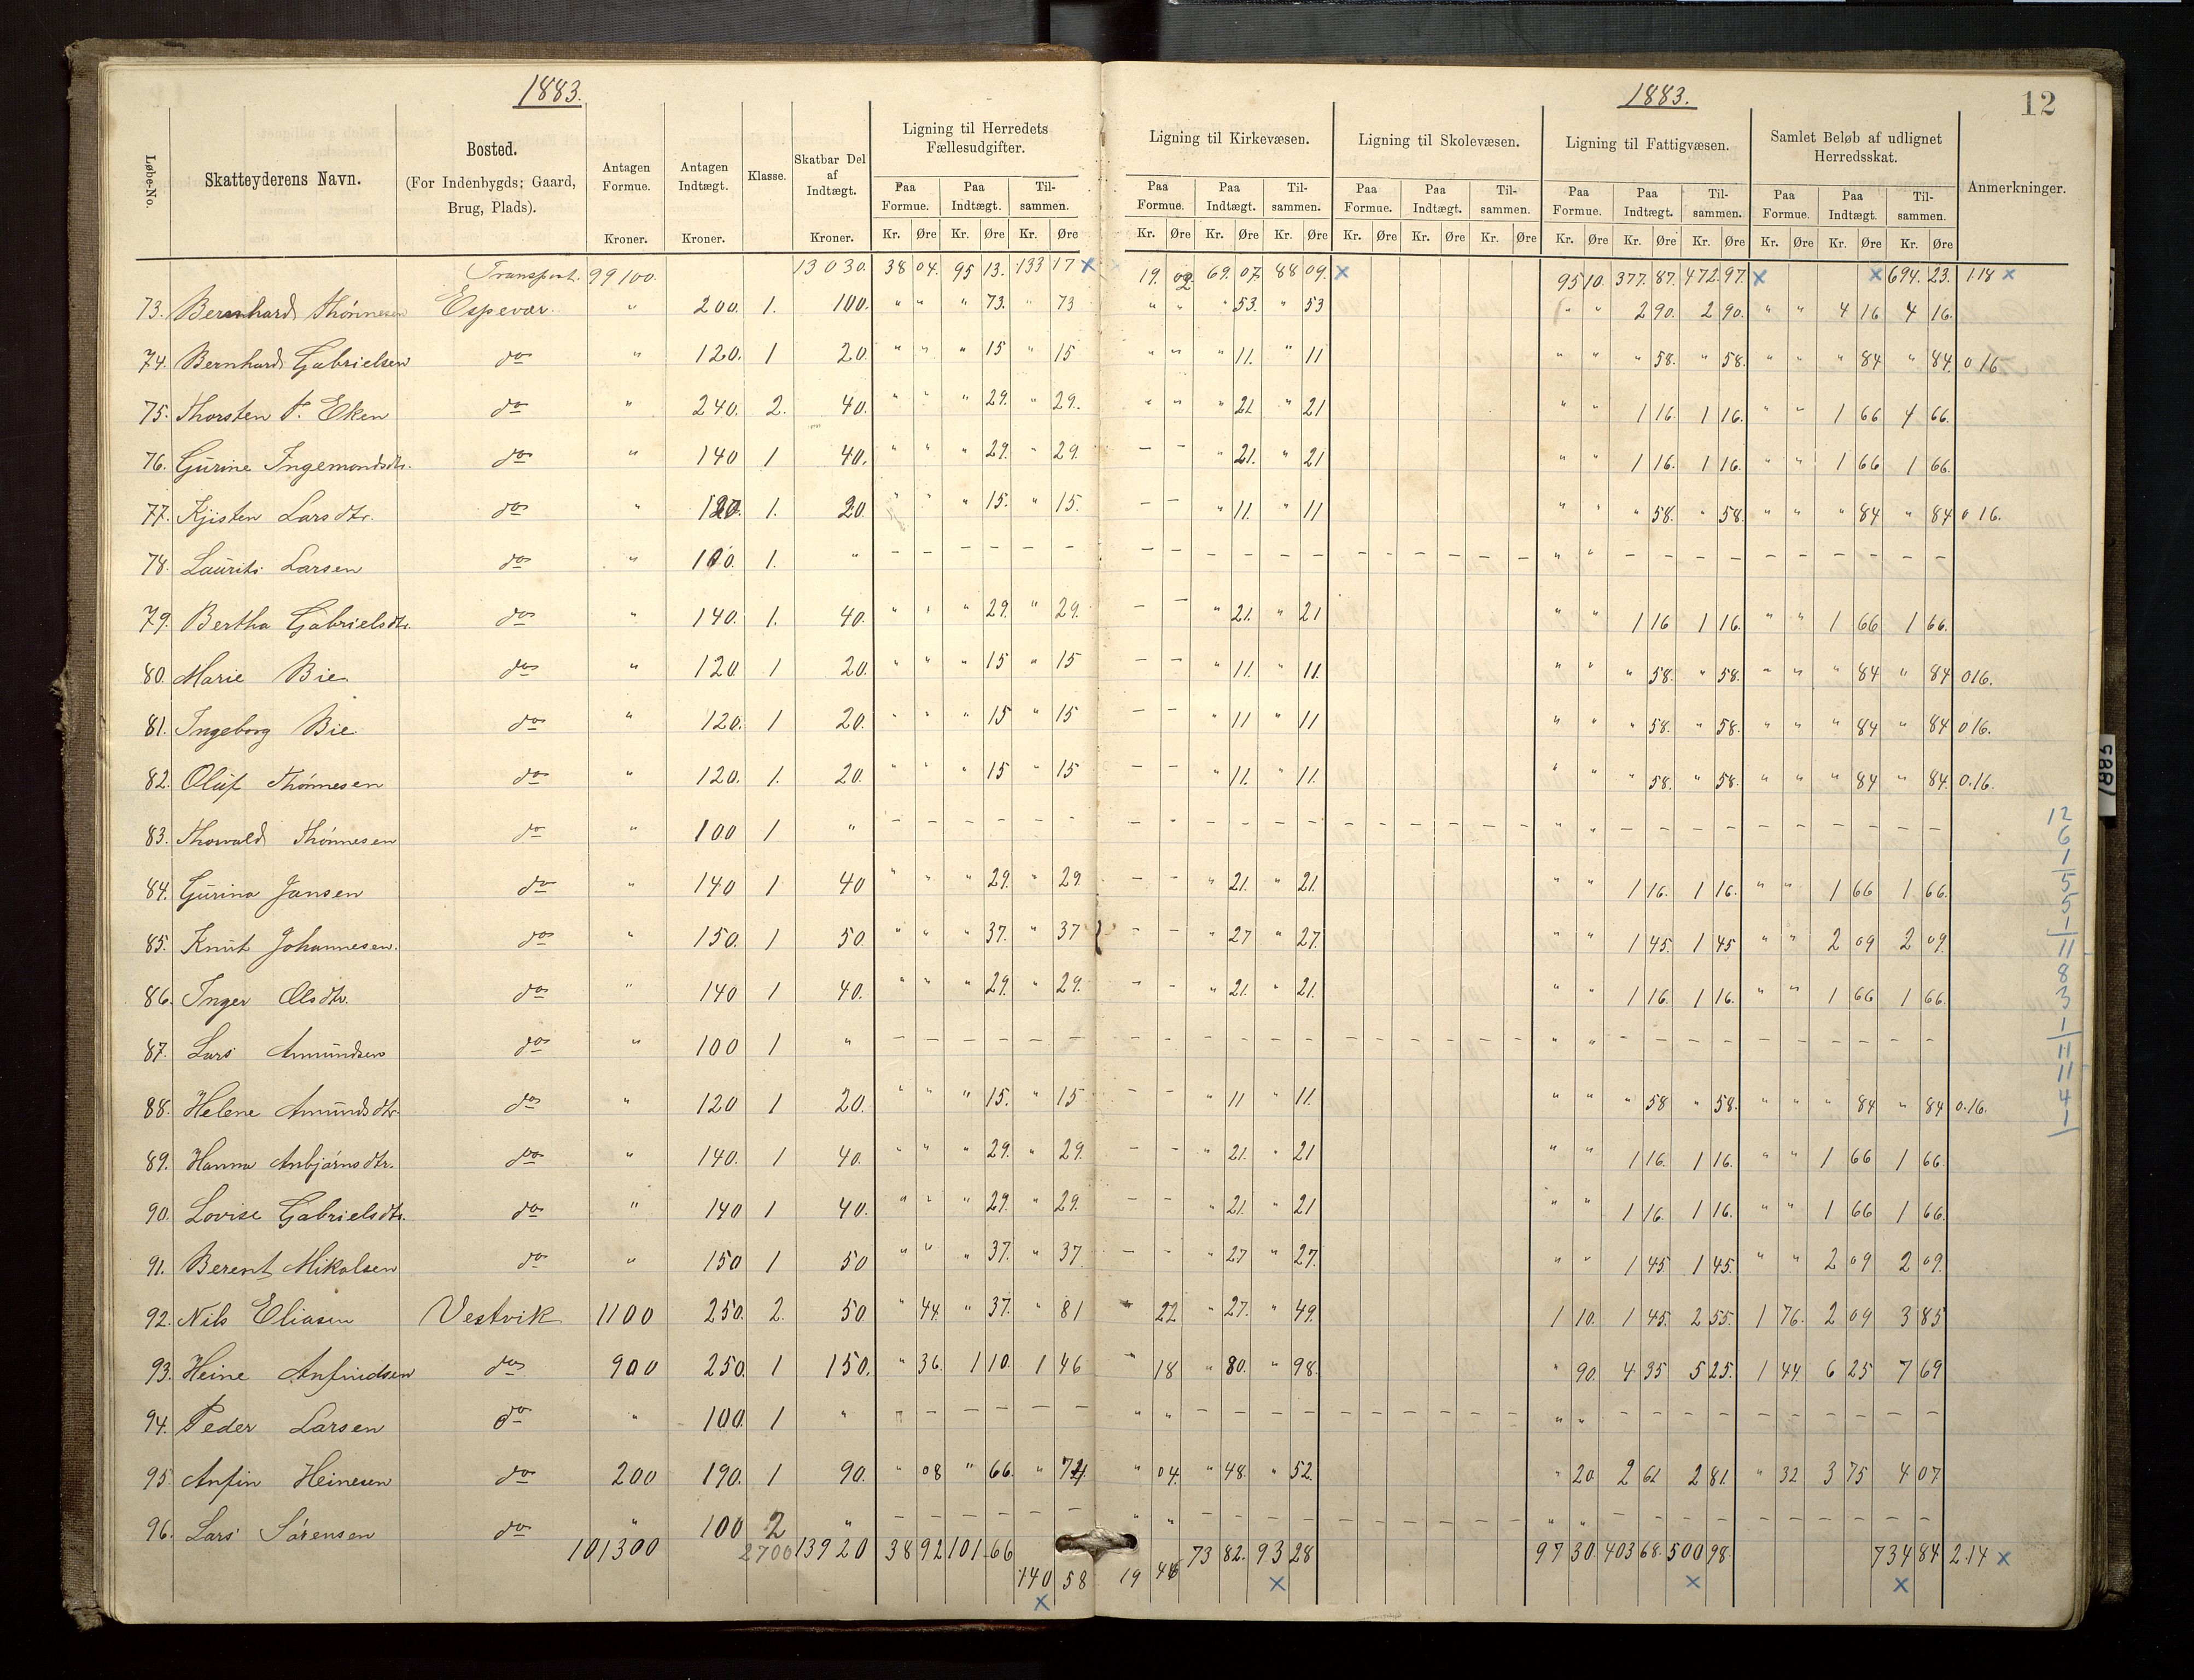 1883. 1883. 12
Løbe-No. Skatteyderens Navn. Bosted. (For Indenbygds: Gaard, Brug, Plads). Antagen Formue. Kroner. Antagen Indtægt. Kroner. Klasse. Skatbar Del af Indtægt. Kroner. Ligning til Herredets Fællesudgifter. Ligning til Kirkevæsen. Ligning til Skolevæsen. Ligning til Fattigvæsen. Samlet Beløb af udlignet Herredsskat. Anmerkninger.
Paa Formue. Paa Indtægt. Til- sammen. Paa Formue. Paa Indtægt. Til- sammen. Paa Formue. Paa Indtægt. Til- sammen. Paa Formue. Paa Indtægt. Til- sammen. Paa Formue. Paa Indtægt. Til- sammen.
Kr. Øre Kr. Øre Kr. Øre Kr. Øre Kr. Øre Kr. Øre Kr. Øre Kr. Øre Kr. Øre Kr. Øre Kr. Øre Kr. Øre Kr. Øre Kr. Øre Kr. Øre
Transport. 99100. 13030. 38 04. 95 13. 133 17 x 19. 02. 69. 07. 88 09. x 95 10. 377. 87. 472. 97. x x 694. 23. 118 x
73. Bernhard Thönnesen Espevær. " 200. 1. 100. " " " 73. " 73 " " " 53. " 53 " " 2 90. 2 90. " " 4 16 4 16.
74. Bernhard Gabrielsen do " 120. 1 20. " " " 15 " 15 " " " 11. " 11 " " " 58. " 58. " " " 84 " 84. 0 16
75. Thorsten P. Eken do " 240. 2. 40. " " " 29. " 29. " " " 21 " 21 " " 1 16. 1 16. " " 1 66 4 66.
76. Gurine Ingemondsdtr. do " 140 1 40. " " " 29. " 29. – – " 21. " 21 " " 1 16. 1 16. " " 1 66 1 66.
77. Kjisten Larsdtr. do " 120. 1. 20. " " " 15. " 15. – – " 11. " 11 " " " 58. " 58. " " " 84 " 84 0 16.
78. Laurits Larsen do " 100. 1. " – – – – – – – – – – – – – – – – – – " " – – – – – – – – – –
79. Bertha Gabrielsdtr. do " 140. 1. 40. " " " 29. " 29. – – " 21. " 21 " " 1 16 1 16. " " 1 66 1 66.
80. Marie Bie do " 120 1 20. " " " 15 " 15 – – " 11. " 11. " " " 58. " 58. " " " 84 " 84 0 16.
81. Ingeborg Bie do " 120. 1 20. " " " 15 " 15 – – " 11 " 11 " " " 58. " 58. " " " 84 " 84 0 16.
82. Oluf Thönnesen do " 120. 1. 20. " " " 15 " 15 – – " 11. " 11. " " " 58. " 58. " " " 84 " 84. 0.16.
83. Thorvald Thönnesen do " 100 1 " – – – – – – – – – – – – – – – – – – " " – – – – – – – – – –
84. Gurina Jansen do " 140 1 40 " " " 29. " 29 – – " 21. " 21. " " 1 16. 1 16. " " 1 66 1 66.
85. Knut Johannesen. do " 150. 1 50 " " " 37. " 37 – – " 27 " 27. " " 1 45. 1 45 " " 2 09 2 09.
86. Inger Olsdtr. do " 140 1 40. " " " 29. " 29. – – " 21. " 21. " " 1 16. 1 16. " " 1 66 1 66.
87. Lars Amundsen do " 100 1 " – – – – – – – – – – – – – – – – – – " " – – – – – – – – – –
88. Helene Amundsdtr. do " 120 1 20. " " " 15. " 15 – – " 11 " 11. " " " 58 " 58. " " " 84 " 84 0.16.
89. Hanna Anbjörnsdtr. do " 140. 1 40. " " " 29. " 29. – – " 21. " 21 " " 1 16. 1 16. " " 1 66 1 66.
90. Lovise Gabrielsdtr. do " 140 1 40. " " " 29. " 29. – – " 21. " 21 " " 1 16. 1 16. " " 1 66 1 66.
91. Berent Mikalsen do " 150 1 50 " " " 37. " 37 – – " 27 " 27. " " 1 45. 1 45. " " 2 09 2 09.
92. Nils Eliasen Vestvik 1100 250. 2. 50. " 44. " 37. " 81 " 22 " 27. " 49. 1 10. 1 45. 2 55. 1 76. 2 09 3 85
93. Heine Anfindsen do 900 250. 1 150. " 36. 1 10. 1 46 " 18 " 80. " 98. " 90. 4 35 5 25. 1 44. 6 25 7 69
94. Peder Larsen do " 100. 1 " " – – – – – " " – – – – – – – – – – " " – – – – – – – – – –
95. Anfin Heinesen do 200 190. 1 90. " 08 " 66. " 74. " 04. " 48. " 52. " 20. 2 61 2 81. " 32 3 75 4 07
96. Lars Sörensen do " 100 2 " – – – – – – " " – – – – – – – – – – " " – – – – – – – – – –
101300 2700 13920 38 92 101 66 140 58 x 19 46 73 82. 93 28 x 97 30. 403 68. 500 98. x 734 84 x 2.14 x
12
6
1
5
5
1
11
8
3
1
11
11
4
1
1885